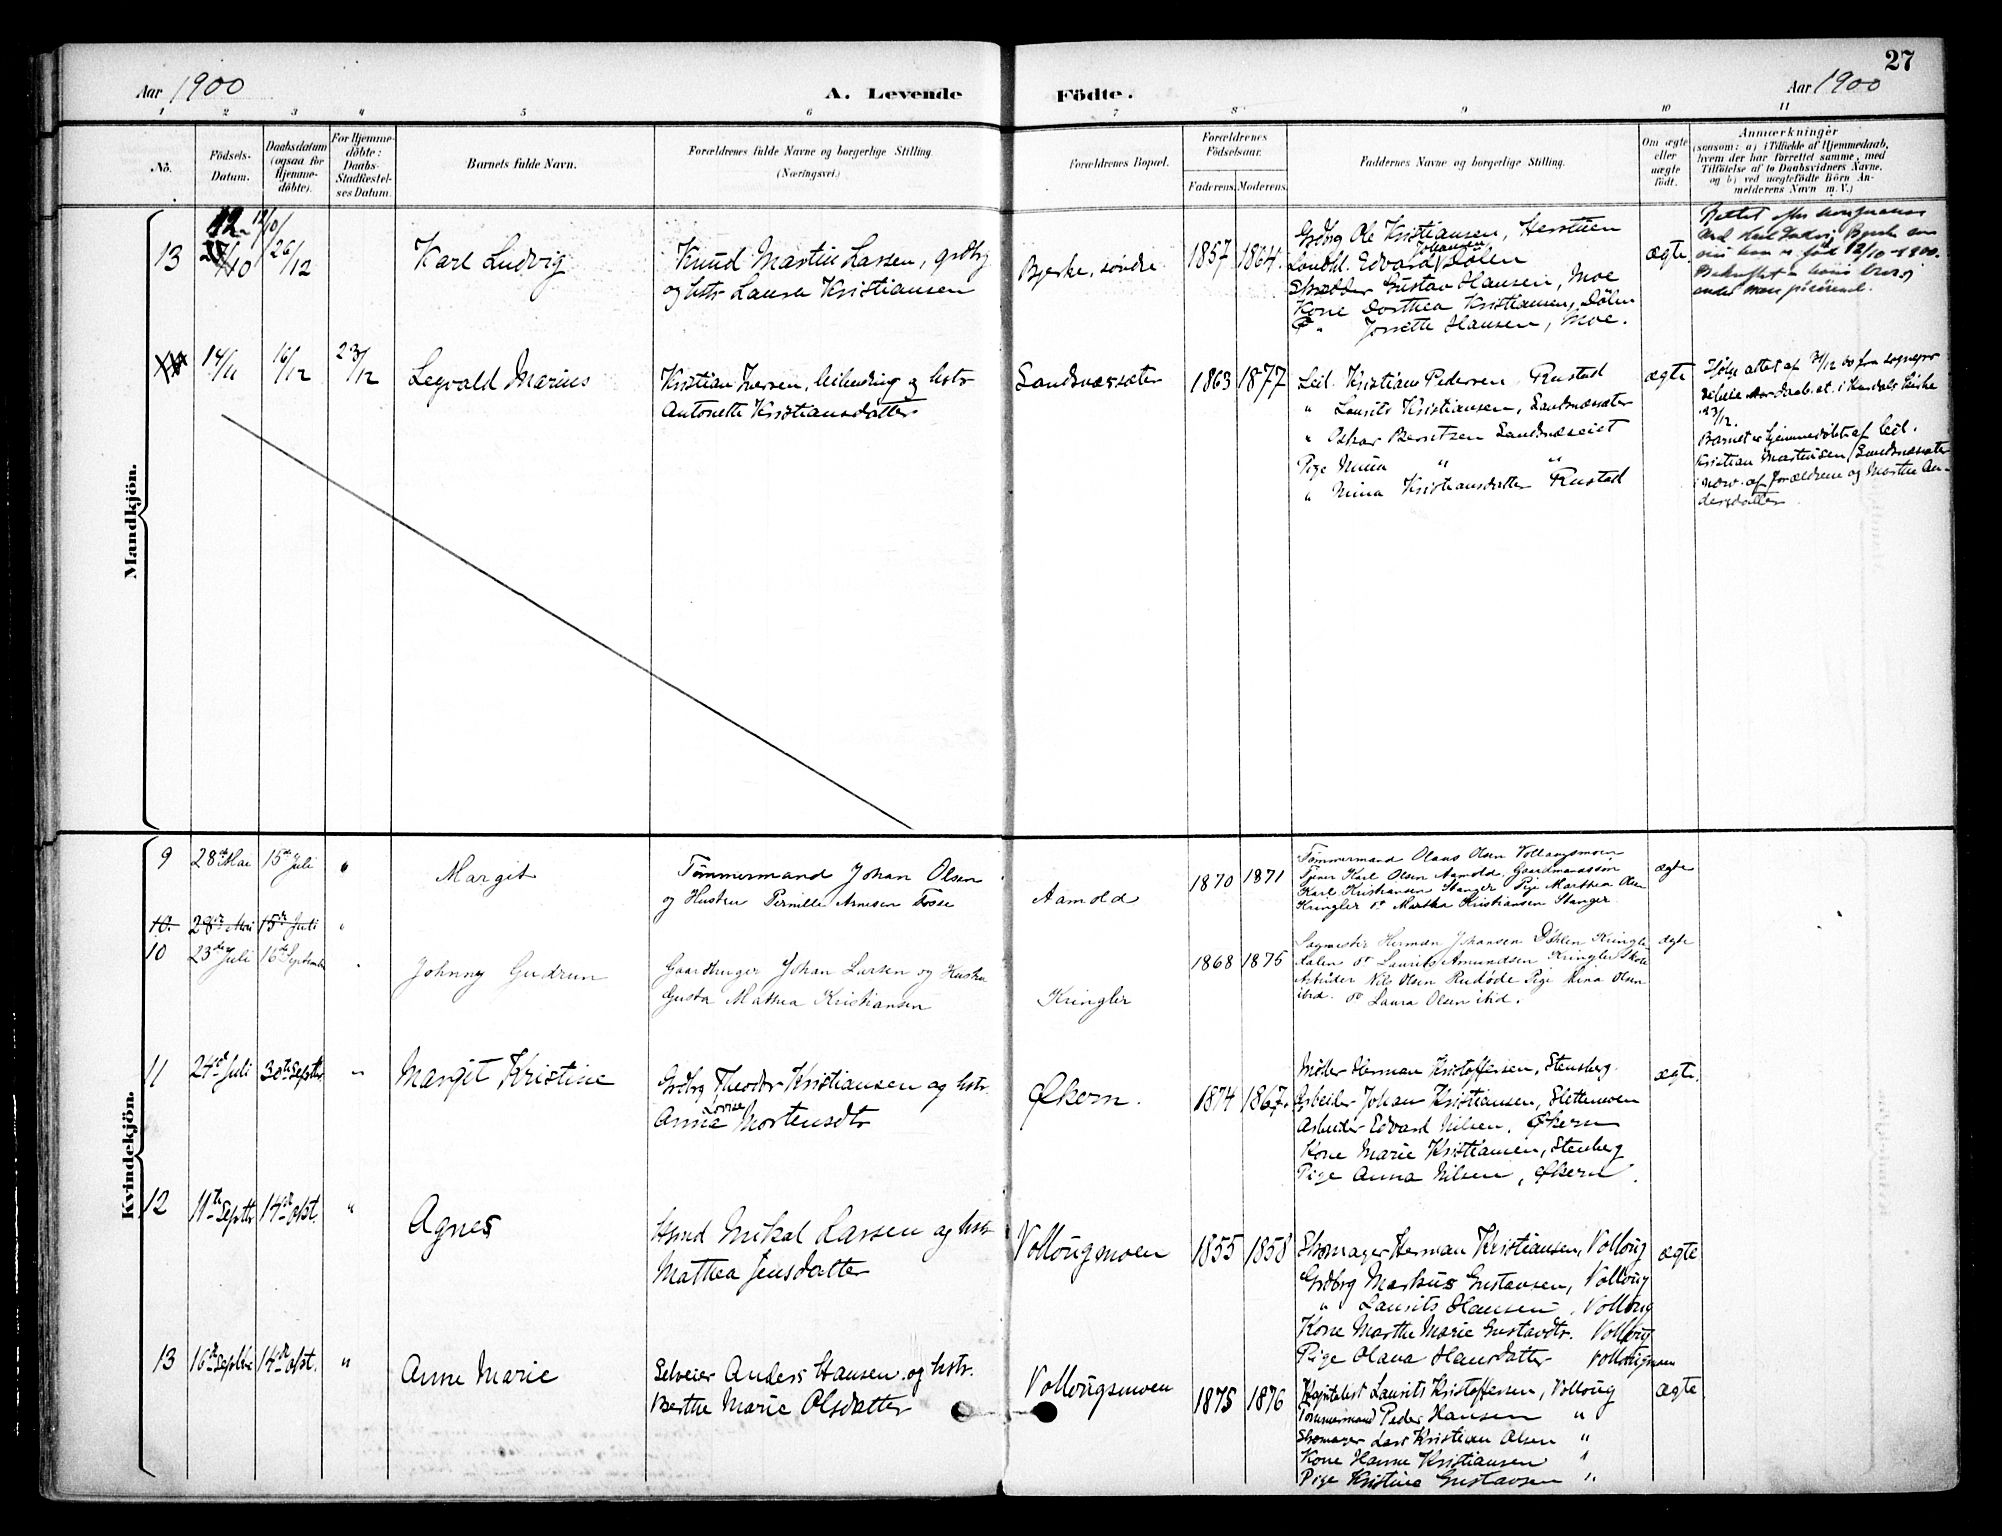 27
Aar 1900
A. Levende
Födte.
Aar 1900
1 2 3 4 5 6 7 8 9 10 11
No.
Födsels-
Datum.
Daabsdatum
(ogsaa for
Hjemme-
döbte).
For Hjemme-
döbte:
Daabs-
Stadfæstel-
ses Datum.
Barnets fulde Navn.
Forældrenes fulde Navne og borgerlige Stilling.
(Næringsvei.)
Forældrenes Bopæl.
Forældrenes
Födselsaar.
Faderens. Moderens.
Faddernes Navne og borgerlige Stilling.
Om ægte
eller
uægte
födt.
Anmærkninger
(saasom: a) i Tilfælde af Hjemmedaab,
hvem der har forrettet samme, med
Tilföielse af to Daabsvidners Navne,
og b) ved uægtefödte Börn An-
melderens Navn m. V.)
Mandkjön.
13
12/10
26/12
Karl Ludvig
Knud Martin Larsen, grdbr
og hstr Laura Kristiansen
Bjerke, söndre
1857 1864.
Grdbrg Ole Kristiansen, Herstuen
Johansen
Landhl. Edvard Dölen
Skrædder Gustav Hansen, Moe
Kone Dorthea Kristiansen, Dölen
" Josette Hansen, Moe.
ægte.
född 12/10-1900.
14/11 16/12 23/12
Legvald Marius
Kristian Iversen, leilending og hstr
Antonette Kristiansdatter
Sandnæssæter
1863 1877
Leil. Kristians Pedersen Rustad
" Laurits Kristiansen, Sandnæssæter
" Oskar Berntsen Sandnæseiet
Pige Mina " "
" Nina Kristiansdatter Rustad
ægte
Ifölge attest af
23/12.
Barnet er hjemmedöbt af leil.
Kristian Marthinsen Sandnæssæter
i nærv. af Forældrene og Marthe An-
dersdatter
Kvindekjön.
9 28de Mai 15de Juli "
Margit
Tömmermand Johan Olsen
og Hustru Pernille Arnesen Fosse
Aamold
1870 1871
Tømmermand Olaus Olsen Vollaugsmoen
Tjener Karl Olsen Aamold. Gaardmandssøn
Karl Kristiansen Stanger Pige Marthea Olsen
Kringler do Martha Kristiansen Stanger
ægte
10. 28de Mai 15de Juli "
10 23de Juli 16de September "
Johnny Gudrun
Gaardbruger Johan Larsen og Hustru
Gusta Mathea Kristiansen
Kringler
1868 1875
Sagmester Herman Johansen Døhlen Kringler-
dalen do Laurits Amundsen Kringler
Arbeider Nils Olsen Rudøde Pige Lina Olsen
ibid. do Laura Olsen ibid.
ægte
11 24de Juli 30te Septbr "
Margit Kristine
Grdbrg Theodor Kristiansen og hstr
Lovise
Anne Mortensdtr
Økern.
1874 1867.
Møller Herman Kristoffersen, Stensberg.
Arbeider Johan Kristiansen, Slettemoen
Arbeider Edvard Nilsen, Økern
Kone Marie Kristiansen, Stenberg
Pige Anna Nilsen, Økern.
ægte.
12 11te Septbr 14de Okt. "
Agnes
Hmd Mikal Larsen og hstr
Mathea Jensdatter
Vollougsmoen
1855 1858
Skomager Herman Kristiansen, Volloug
Grdbrg Markus Gustavsen, Volloug
" Laurits Hansen, Volloug
Kone Marthe Marie Gustavdtr. Volloug
Pige Olava Hansdatter Vollougmoen
ægte
13 16de Septbr 14de Okt. "
Anne Marie
Selveier Anders Hansen og hstr.
Berthe Marie Olsdatter
Vollougsmoen
1875 1876
Kapitelist Laurits Kristoffersen, Volloug
Tömmermand Peder Hansen "
Skomager Lars Kristian Olsen "
Kone Hanne Kristiansen "
Pige Kristine Gustavsen "
ægte